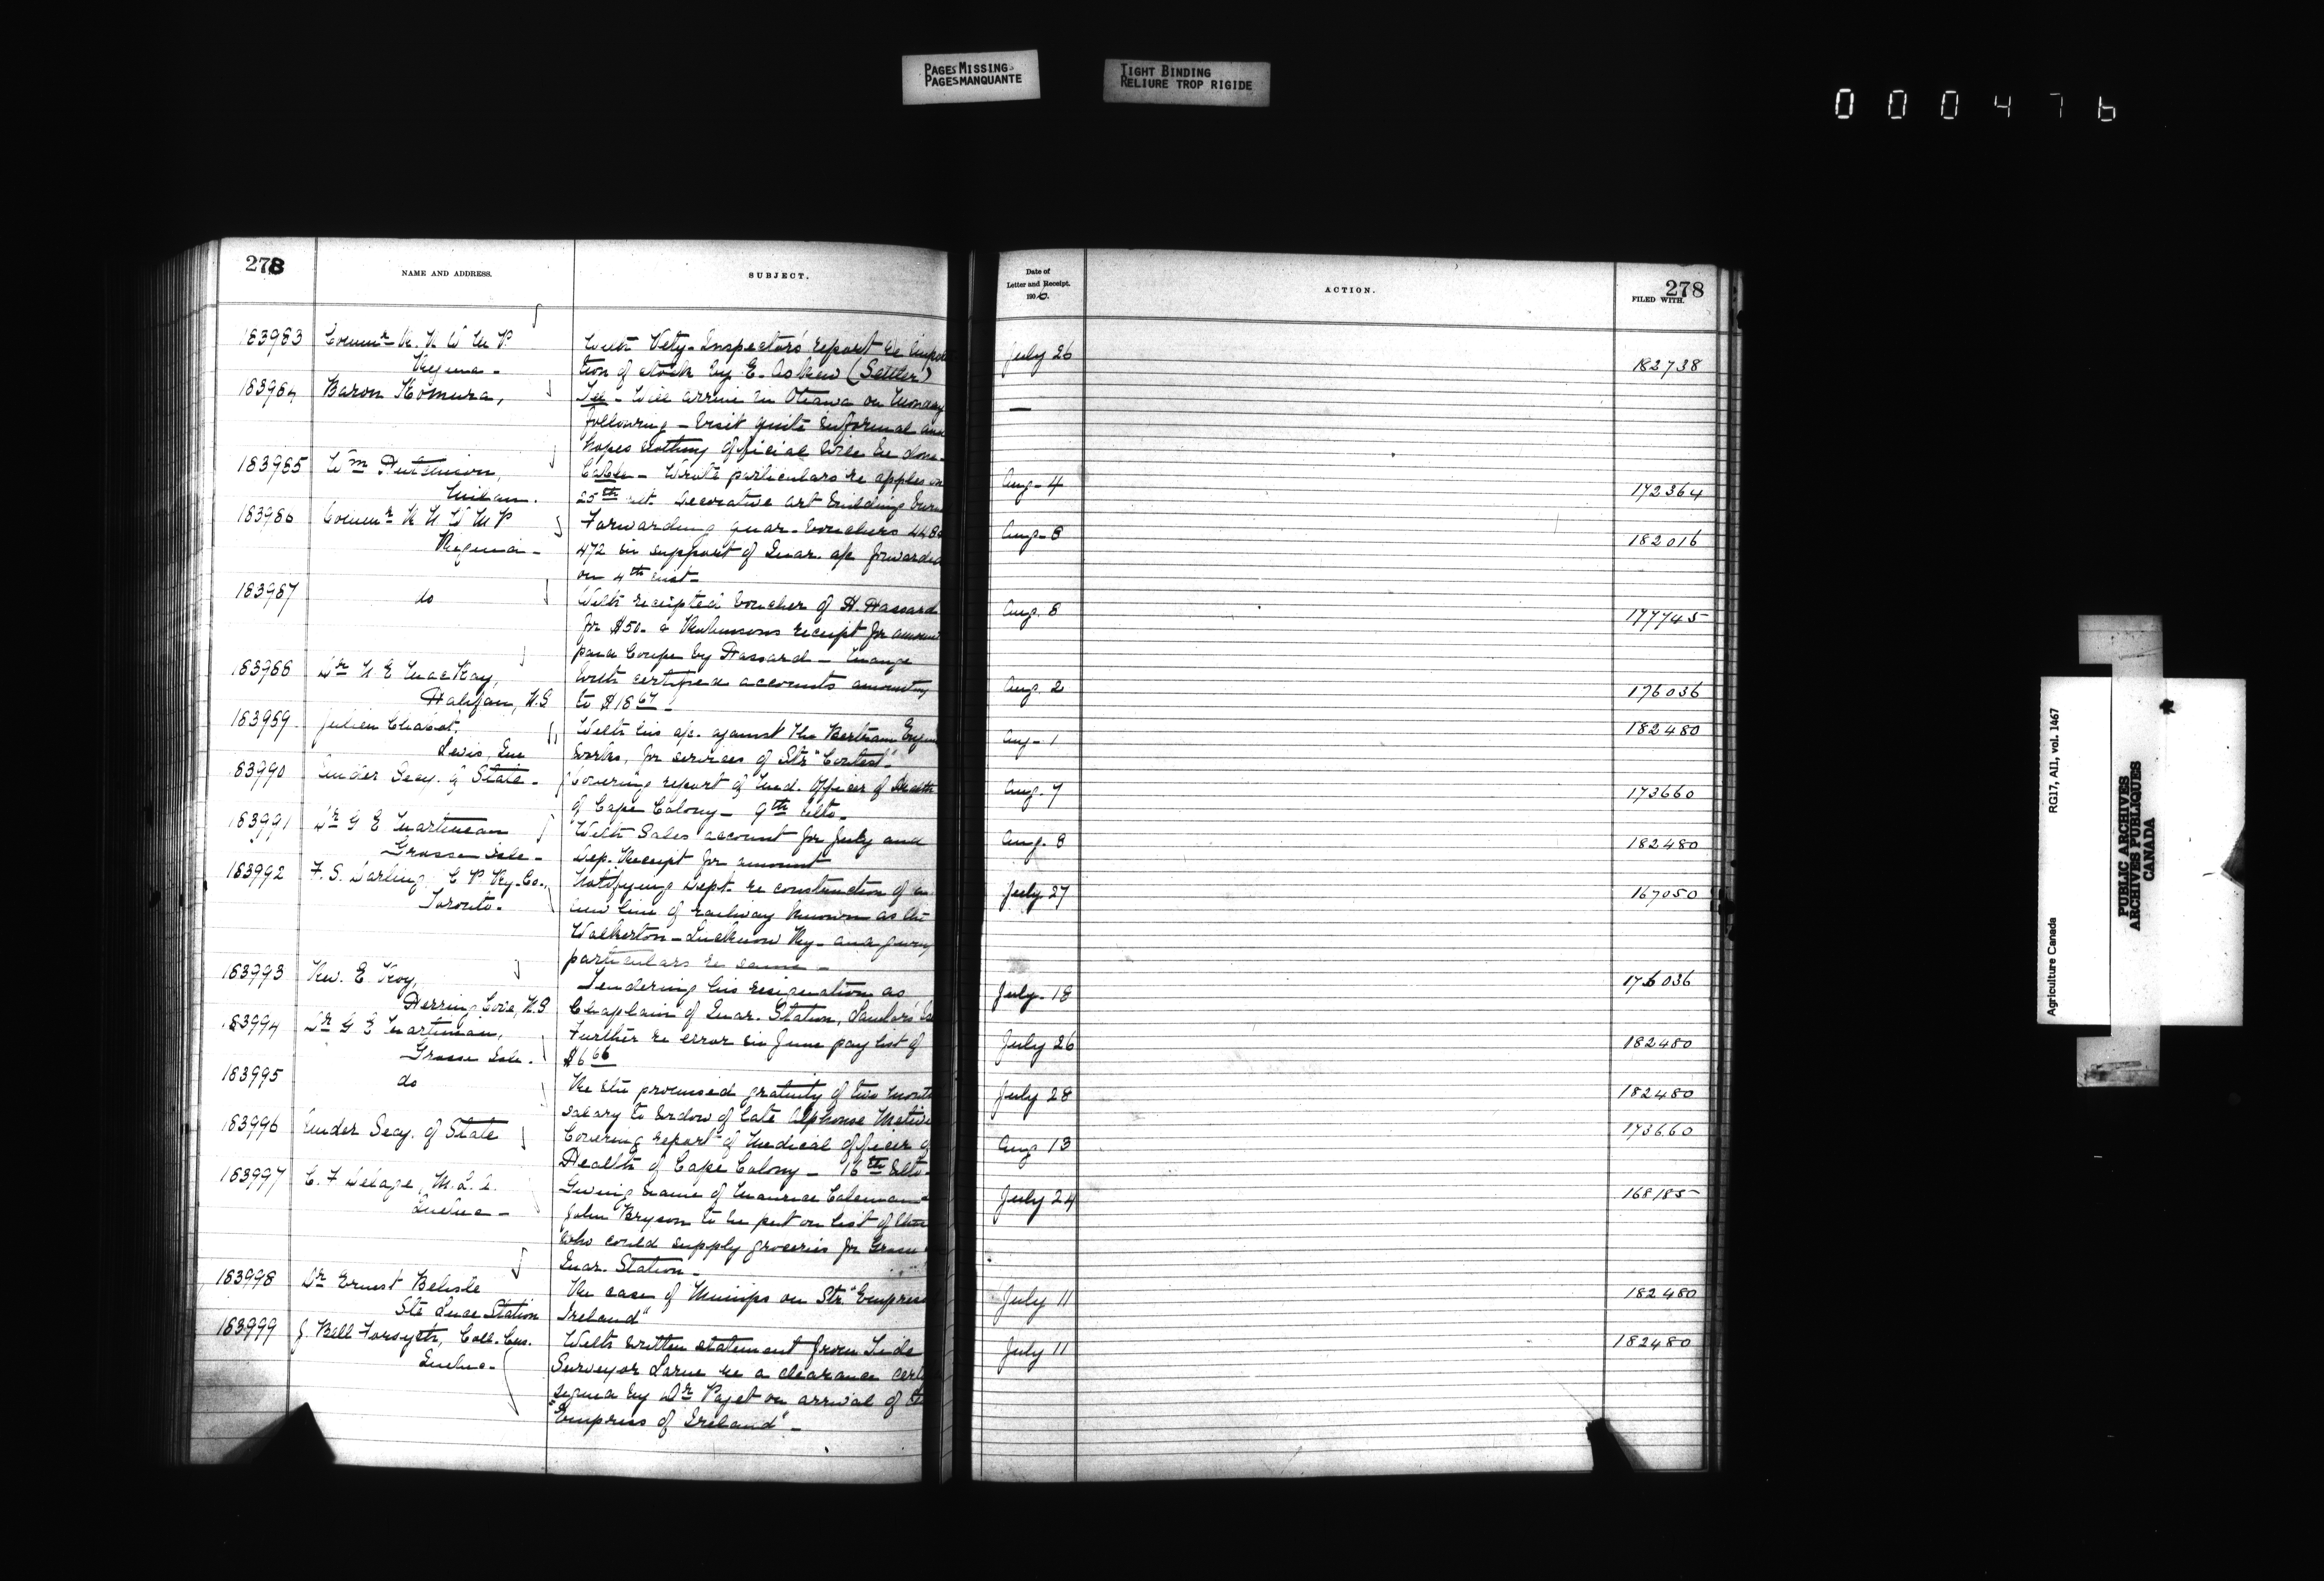 PAGES MISSING
PAGES MANQUANTE
TIGHT BINDING
RELIURE TROP RIGIDE
000476
278
NAME AND ADDRESS.
SUBJECT.
Date of
Letter and Receipt.
1906.
ACTION.
278
FILED WITH.
183983 Commr R. N. W. M. P.
Regina -
With Vety. Inspectors' report re
tion of stock by E. Askew (Settler)
July 26
182738
183984 Baron Komura,
Tel - Will arrive in Ottawa on Monday
following - Visit quite informal and
hopes nothing official will be done -
—
183985 Wm Hutchison,
Milan.
Cable - Wrote particulars re apples on
25th ult. Decorative art buildings
Aug - 4
172364
183986 Commr R N W M P
Regina -
Forwarding quar. vouchers
472 in support of Quar. a/c forwarded
on 4th inst -
Aug - 8
182016
183987 do
With receipted voucher of H. Hassard
for $50 - & receipt for amount
paid by Hassard - Mange
Aug. 8
177745
183988 Dr N E MacKay,
Halifax, N.S
With certified accounts amounting
to $18 67 -
Aug. 2
176036
183989 Julien Chabot,
Levis, Que
With his a/c. against the Bertram Engine
works, for services of Str "Contest"
Aug - 1
182480
183990 Under Secy. of State -
Covering report of Med. Officer of Health
of Cape Colony - 9th ulto -
Aug. 7
173660
183991 Dr G E Martineau
Grosse Isle -
With Sales account for July and
Dep. Receipt for amount
Aug. 8
182480
183992 F. S. Darling, C P Ry. Co.,
Toronto -
Notifying Dept. re construction of a
new line of railway known as the
Walkerton - Lucknow Ry - and giving
particulars re same -
July 27
167050
183993 Rev. E Roy,
Herring Cove, N.S
Tendering his resignation as
Chaplain of Quar. Station,
July - 18
176036
183994 Dr G E Martineau,
Grosse Isle.
Further re error in June pay list of
$6 66
July 26
182480
183995 do
Re the promised gratuity of two months
salary to widow of late Alphonse
July 28
182480
183996 Under Secy. of State
Covering report of Medical Officer of
Health of Cape Colony - 16th Ulto -
Aug 13
173660
183997 C. F Delage, M. L. A.
Quebec -
Giving name of Maurice Coleman &
John Bryson to be put on list of those
who could supply groceries for Grosse
Quar. Station -
July 24
168185
183998 Dr Ernest Belisle
Ste Luce Station
Re case of Mumps on Str. "Empress
Ireland"
July 11
182480
183999 J. Bell Forsyth, Coll. Cus.
Quebec -
With written statement from Tide
Surveyor Larue re a clearance
signed by Dr Paget on arrival of
"Empress of Ireland" -
July 11
182480
Agriculture Canada RG17, AII, vol. 1467
PUBLIC ARCHIVES
ARCHIVES PUBLIQUES
CANADA